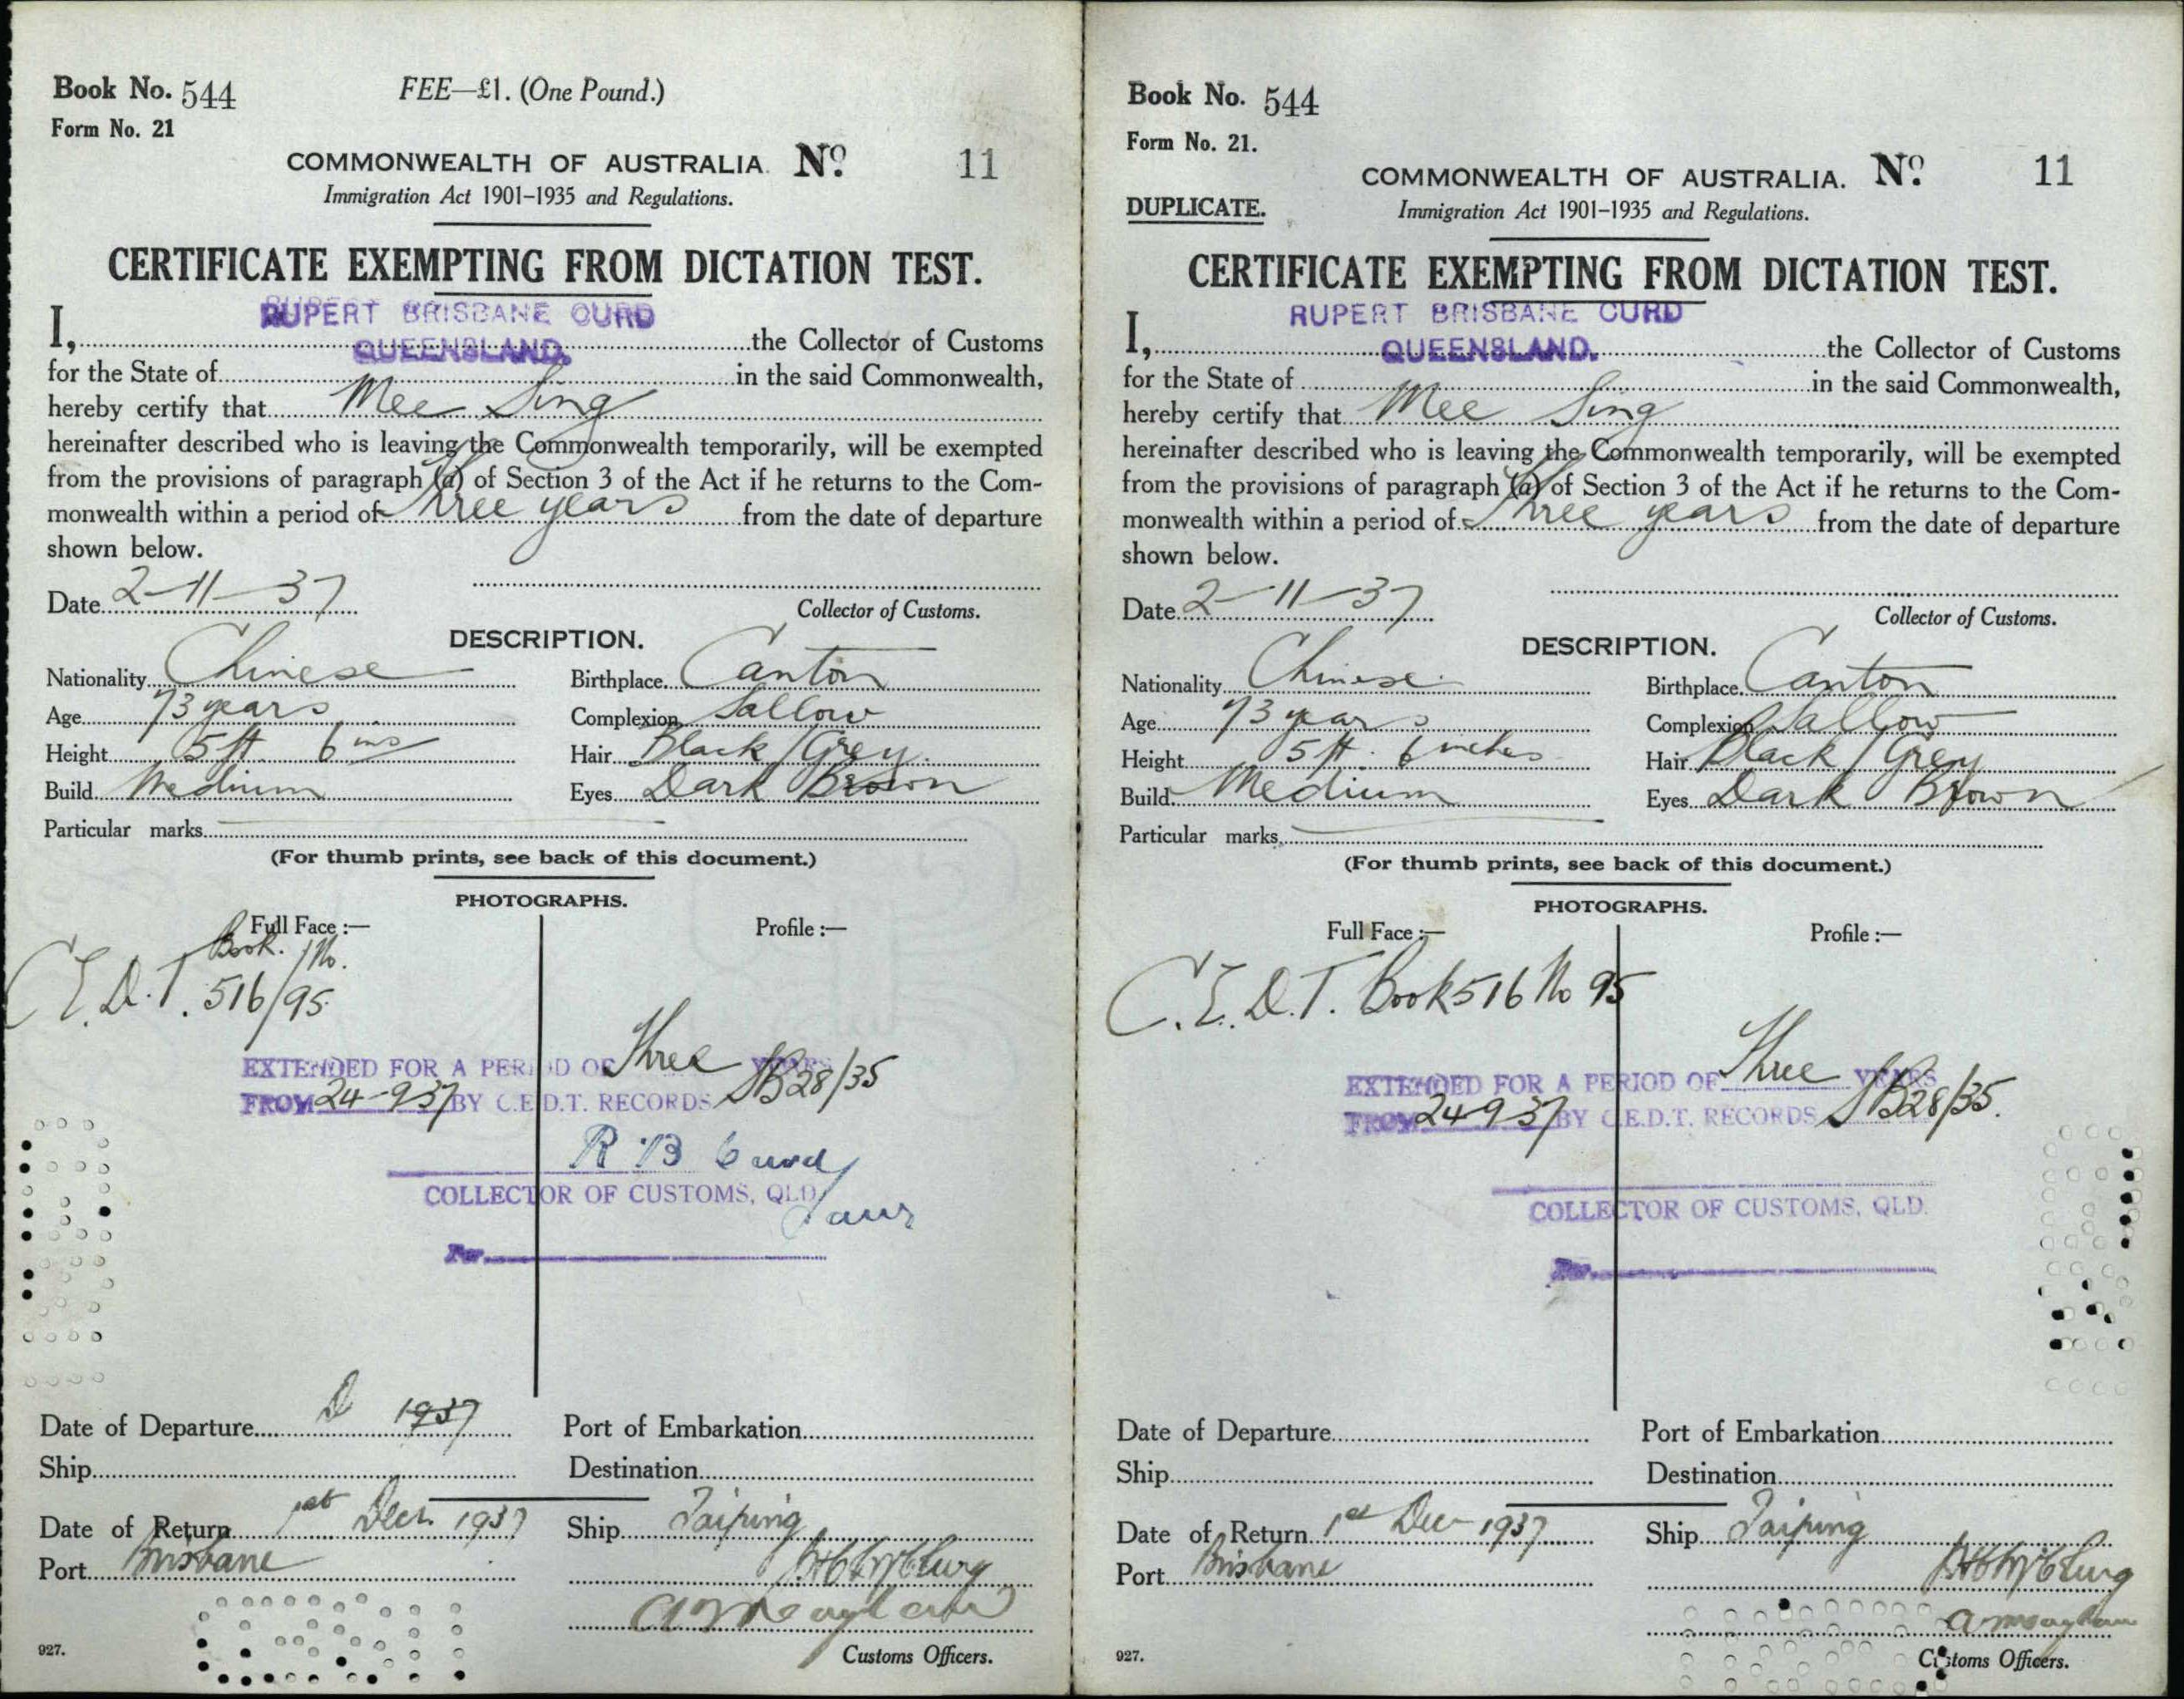 Book No. 544
FEE—£1. (One Pound.)
Form No. 21
COMMONWEALTH OF AUSTRALIA. No. 11
Immigration Act 1901–1935 and Regulations.
CERTIFICATE EXEMPTING FROM DICTATION TEST.
RUPERT BRISBANE CURD
I, the Collector of Customs
QUEENSLAND.
for the State of in the said Commonwealth,
hereby certify that Mee Sing
hereinafter described who is leaving the Commonwealth temporarily, will be exempted
from the provisions of paragraph (a) of Section 3 of the Act if he returns to the Com-
monwealth within a period of Three years from the date of departure
shown below.
Date 2-11-37
Collector of Customs.
DESCRIPTION.
Nationality Chinese Birthplace Canton
Age 73 years Complexion Sallow
Height 5 ft 6 ins Hair Black/Grey
Build Medium Eyes Dark Brown
Particular marks
(For thumb prints, see back of this document.)
PHOTOGRAPHS.
Full Face :— Profile :—
Book. / No.
C.E.D.T. 516/95
EXTENDED FOR A PERIOD OF Three YEARS
FROM 24-9-37 BY C.E.D.T. RECORDS 28/35
R B Curd
COLLECTOR OF CUSTOMS, QLD.
Per
Date of Departure 1937 Port of Embarkation
Ship Destination
Date of Return 1st Decr. 1937 Ship Taiping
Port Brisbane
927.
Customs Officers.
Book No. 544
Form No. 21.
COMMONWEALTH OF AUSTRALIA. No. 11
DUPLICATE.
Immigration Act 1901–1935 and Regulations.
CERTIFICATE EXEMPTING FROM DICTATION TEST.
RUPERT BRISBANE CURD
I, the Collector of Customs
QUEENSLAND.
for the State of in the said Commonwealth,
hereby certify that Mee Sing
hereinafter described who is leaving the Commonwealth temporarily, will be exempted
from the provisions of paragraph (a) of Section 3 of the Act if he returns to the Com-
monwealth within a period of Three years from the date of departure
shown below.
Date 2-11-37
Collector of Customs.
DESCRIPTION.
Nationality Chinese Birthplace Canton
Age 73 years Complexion Sallow
Height 5 ft. 6 inches Hair Black/Grey
Build Medium Eyes Dark Brown
Particular marks
(For thumb prints, see back of this document.)
PHOTOGRAPHS.
Full Face :— Profile :—
C.E.D.T. Book 516 No 95
EXTENDED FOR A PERIOD OF Three YEARS
FROM 24 9 37 BY C.E.D.T. RECORDS 28/35.
COLLECTOR OF CUSTOMS, QLD.
Per
Date of Departure Port of Embarkation
Ship Destination
Date of Return 1st Dec 1937 Ship Taiping
Port Brisbane
927.
Customs Officers.